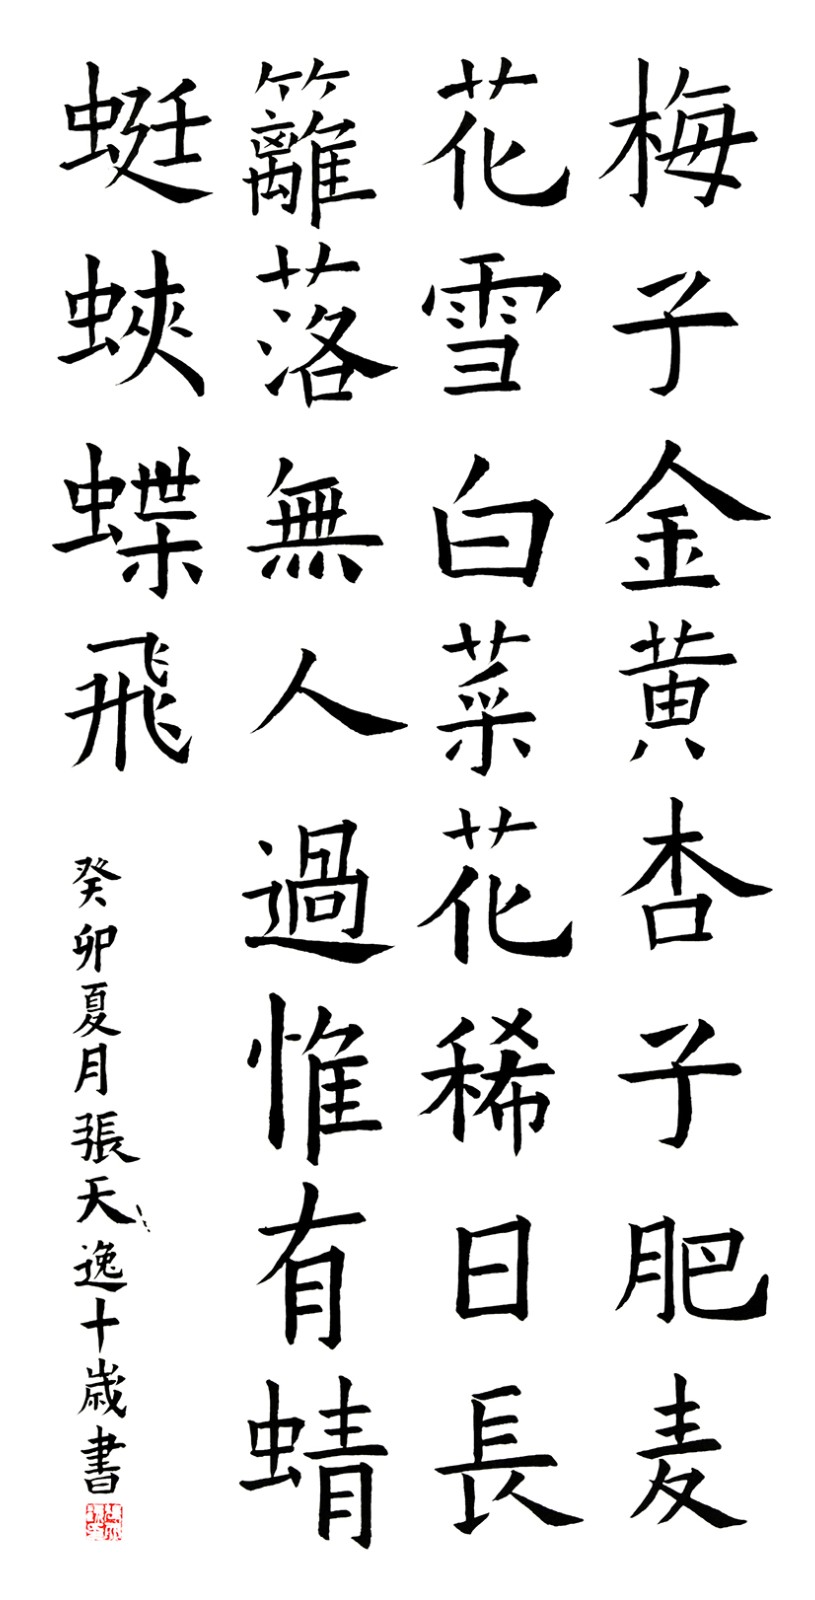 梅子金黄杏子肥麦
花雪白菜花稀日長
籬落無人過惟有蜻
蜓蛺蝶飛
癸卯夏月張天逸十歳書